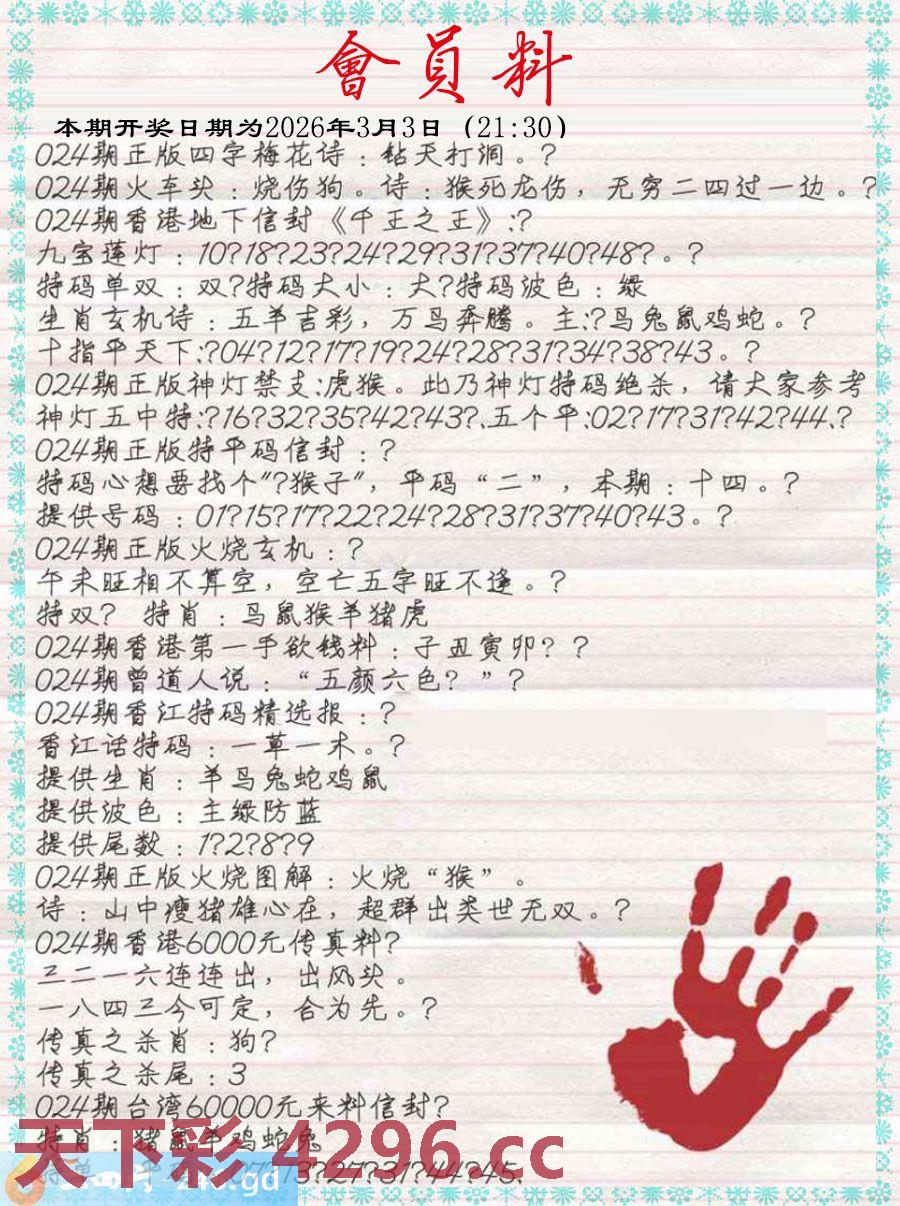 會員料
本期开奖日期为2026年3月3日（21:30）
024期正版四字梅花诗：钻天打洞。?
024期火车头：烧伤狗。诗：猴死龙伤，无穷二四过一边。?
024期香港地下信封《千王之王》:?
九宝莲灯：10?18?23?24?29?31?37?40?48?。?
特码单双：双?特码大小：大?特码波色：绿
生肖玄机诗：五羊吉彩，万马奔腾。主:?马兔鼠鸡蛇。?
十指平天下:?04?12?17?19?24?28?31?34?38?43。?
024期正版神灯禁支:虎猴。此乃神灯特码绝杀，请大家参考
神灯五中特:?16?32?35?42?43?、五个平:02?17?31?42?44、?
024期正版特平码信封：?
特码心想要找个"?猴子"，平码“二”，本期：十四。?
提供号码：01?15?17?22?24?28?31?37?40?43。?
024期正版火烧玄机：?
午未旺相不算空，空亡五字旺不逢。?
特双? 特肖：马鼠猴羊猪虎
024期香港第一手欲钱料：子丑寅卯？?
024期曾道人说：“五颜六色？”?
024期香江特码精选报：?
香江话特码：一草一木。?
提供生肖：羊马兔蛇鸡鼠
提供波色：主绿防蓝
提供尾数：1?2?8?9
024期正版火烧图解：火烧“猴”。
诗：山中瘦猪雄心在，超群出类世无双。?
024期香港6000元传真料?
三二一六连连出，出风头。
一八四三今可定，合为先。?
传真之杀肖：狗?
传真之杀尾：3
024期台湾60000元来料信封?
特肖：猪鼠羊鸡蛇兔
天下彩 4296.cc
13?27?31?44?45、
.gd